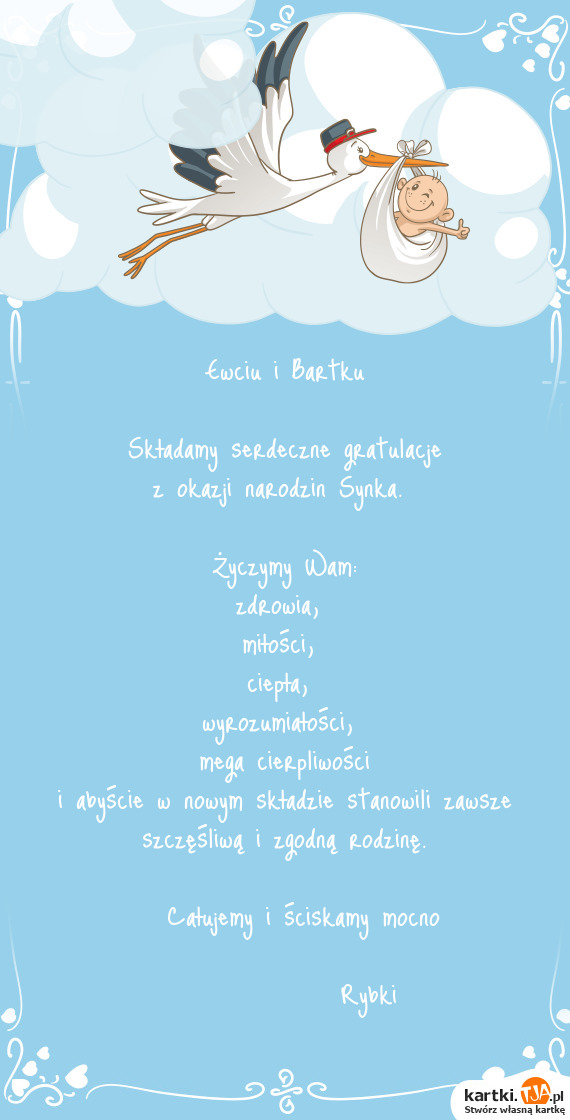 Ewciu i Bartku
Składamy serdeczne gratulacje
z okazji narodzin Synka.
Życzymy Wam:
zdrowia,
miłości,
ciepła,
wyrozumiałości,
mega cierpliwości
i abyście w nowym składzie stanowili zawsze
szczęśliwą i zgodną rodzinę.
Całujemy i ściskamy mocno
Rybki
kartki.TJA.pl
Stwórz własną kartkę